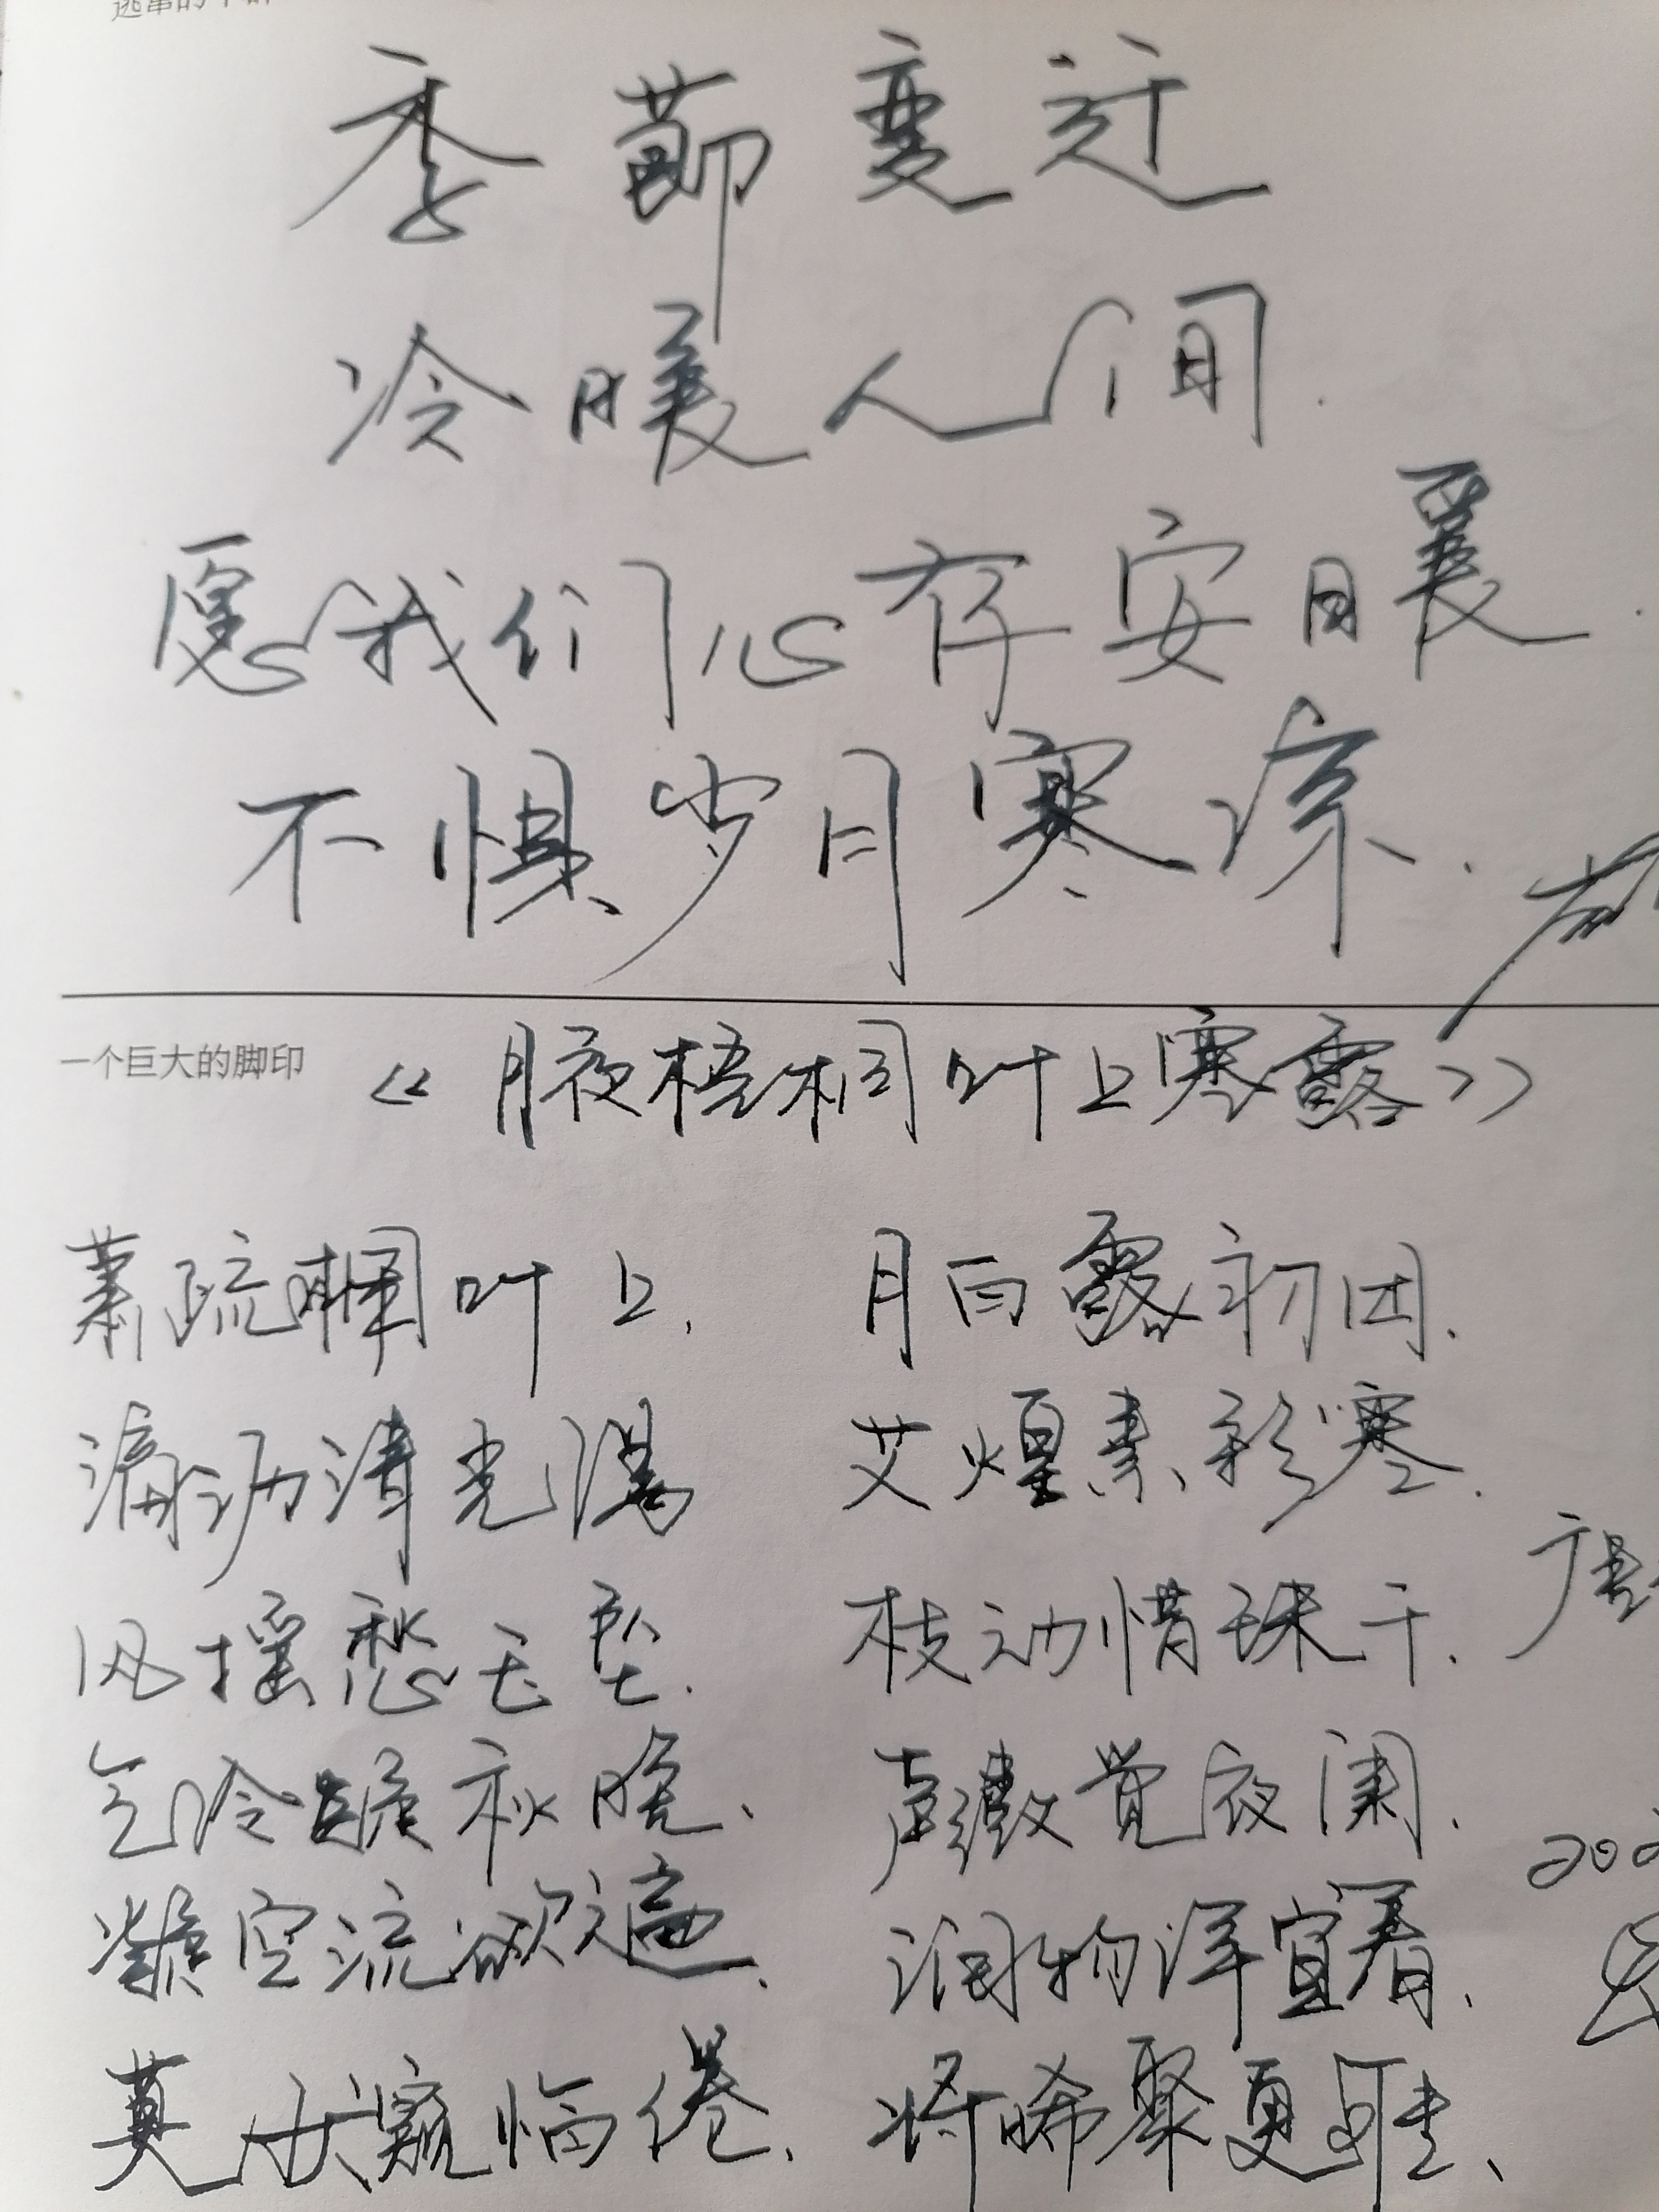 季節变迁
冷暖人间.
愿我们心存安暖.
不惧岁月寒凉.
一个巨大的脚印
《月夜梧桐叶上寒露》
萧疏桐叶上, 月白露初团.
滴沥清光满 艾煌素彩寒.
风摇愁玉坠. 枝动惜珠干. 唐
气冷疑秋晚、 声微觉夜阑.
202
凝空流欲遍. 润物净宜看.
莫厌窥临倦. 将晞聚更难、